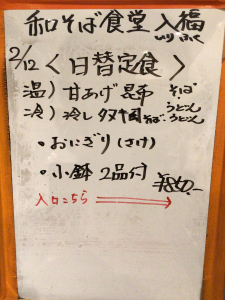 和そば食堂 入福
いり ふく
2/12 〈 日替定食 〉
温) 甘あげ昆布 そば うどん
冷) 冷し タヌキ そば うどん
・おにぎり (さけ)
・小鉢 2品付
¥860.-
入口こちら →